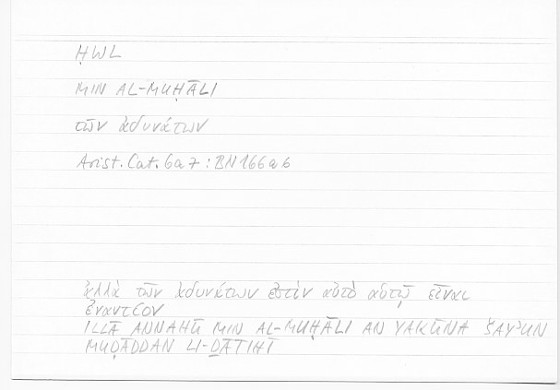 ḤWL
MIN AL-MUḤĀLI
τῶν ἀδυνάτων
Arist. Cat. 6a7 : BN 166a6
ἀλλὰ τῶν ἀδυνάτων ἐστὶν αὐτὸ αὑτῷ εἶναι
ἐναντίον
ILLĀ ANNAHŪ MIN AL-MUḤĀLI AN YAKŪNA ŠAYʾUN
MUḌĀDDAN LI-ḎĀTIHĪ